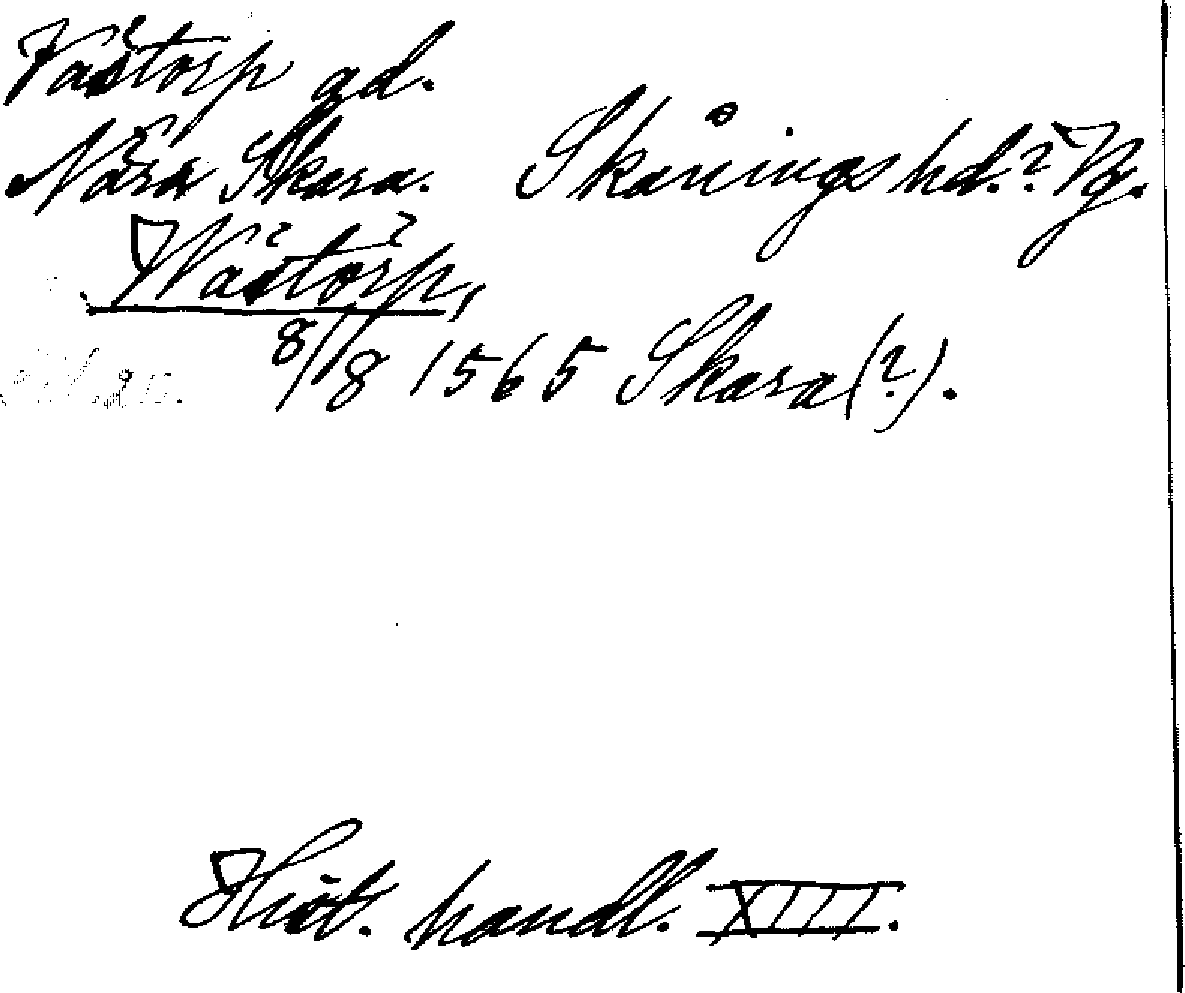 Västorp gd.
Nära Skara. Skånings hd.? Vg.
Wästörp,
8/8 1565 Skara (?).
Hist. handl. XIII.